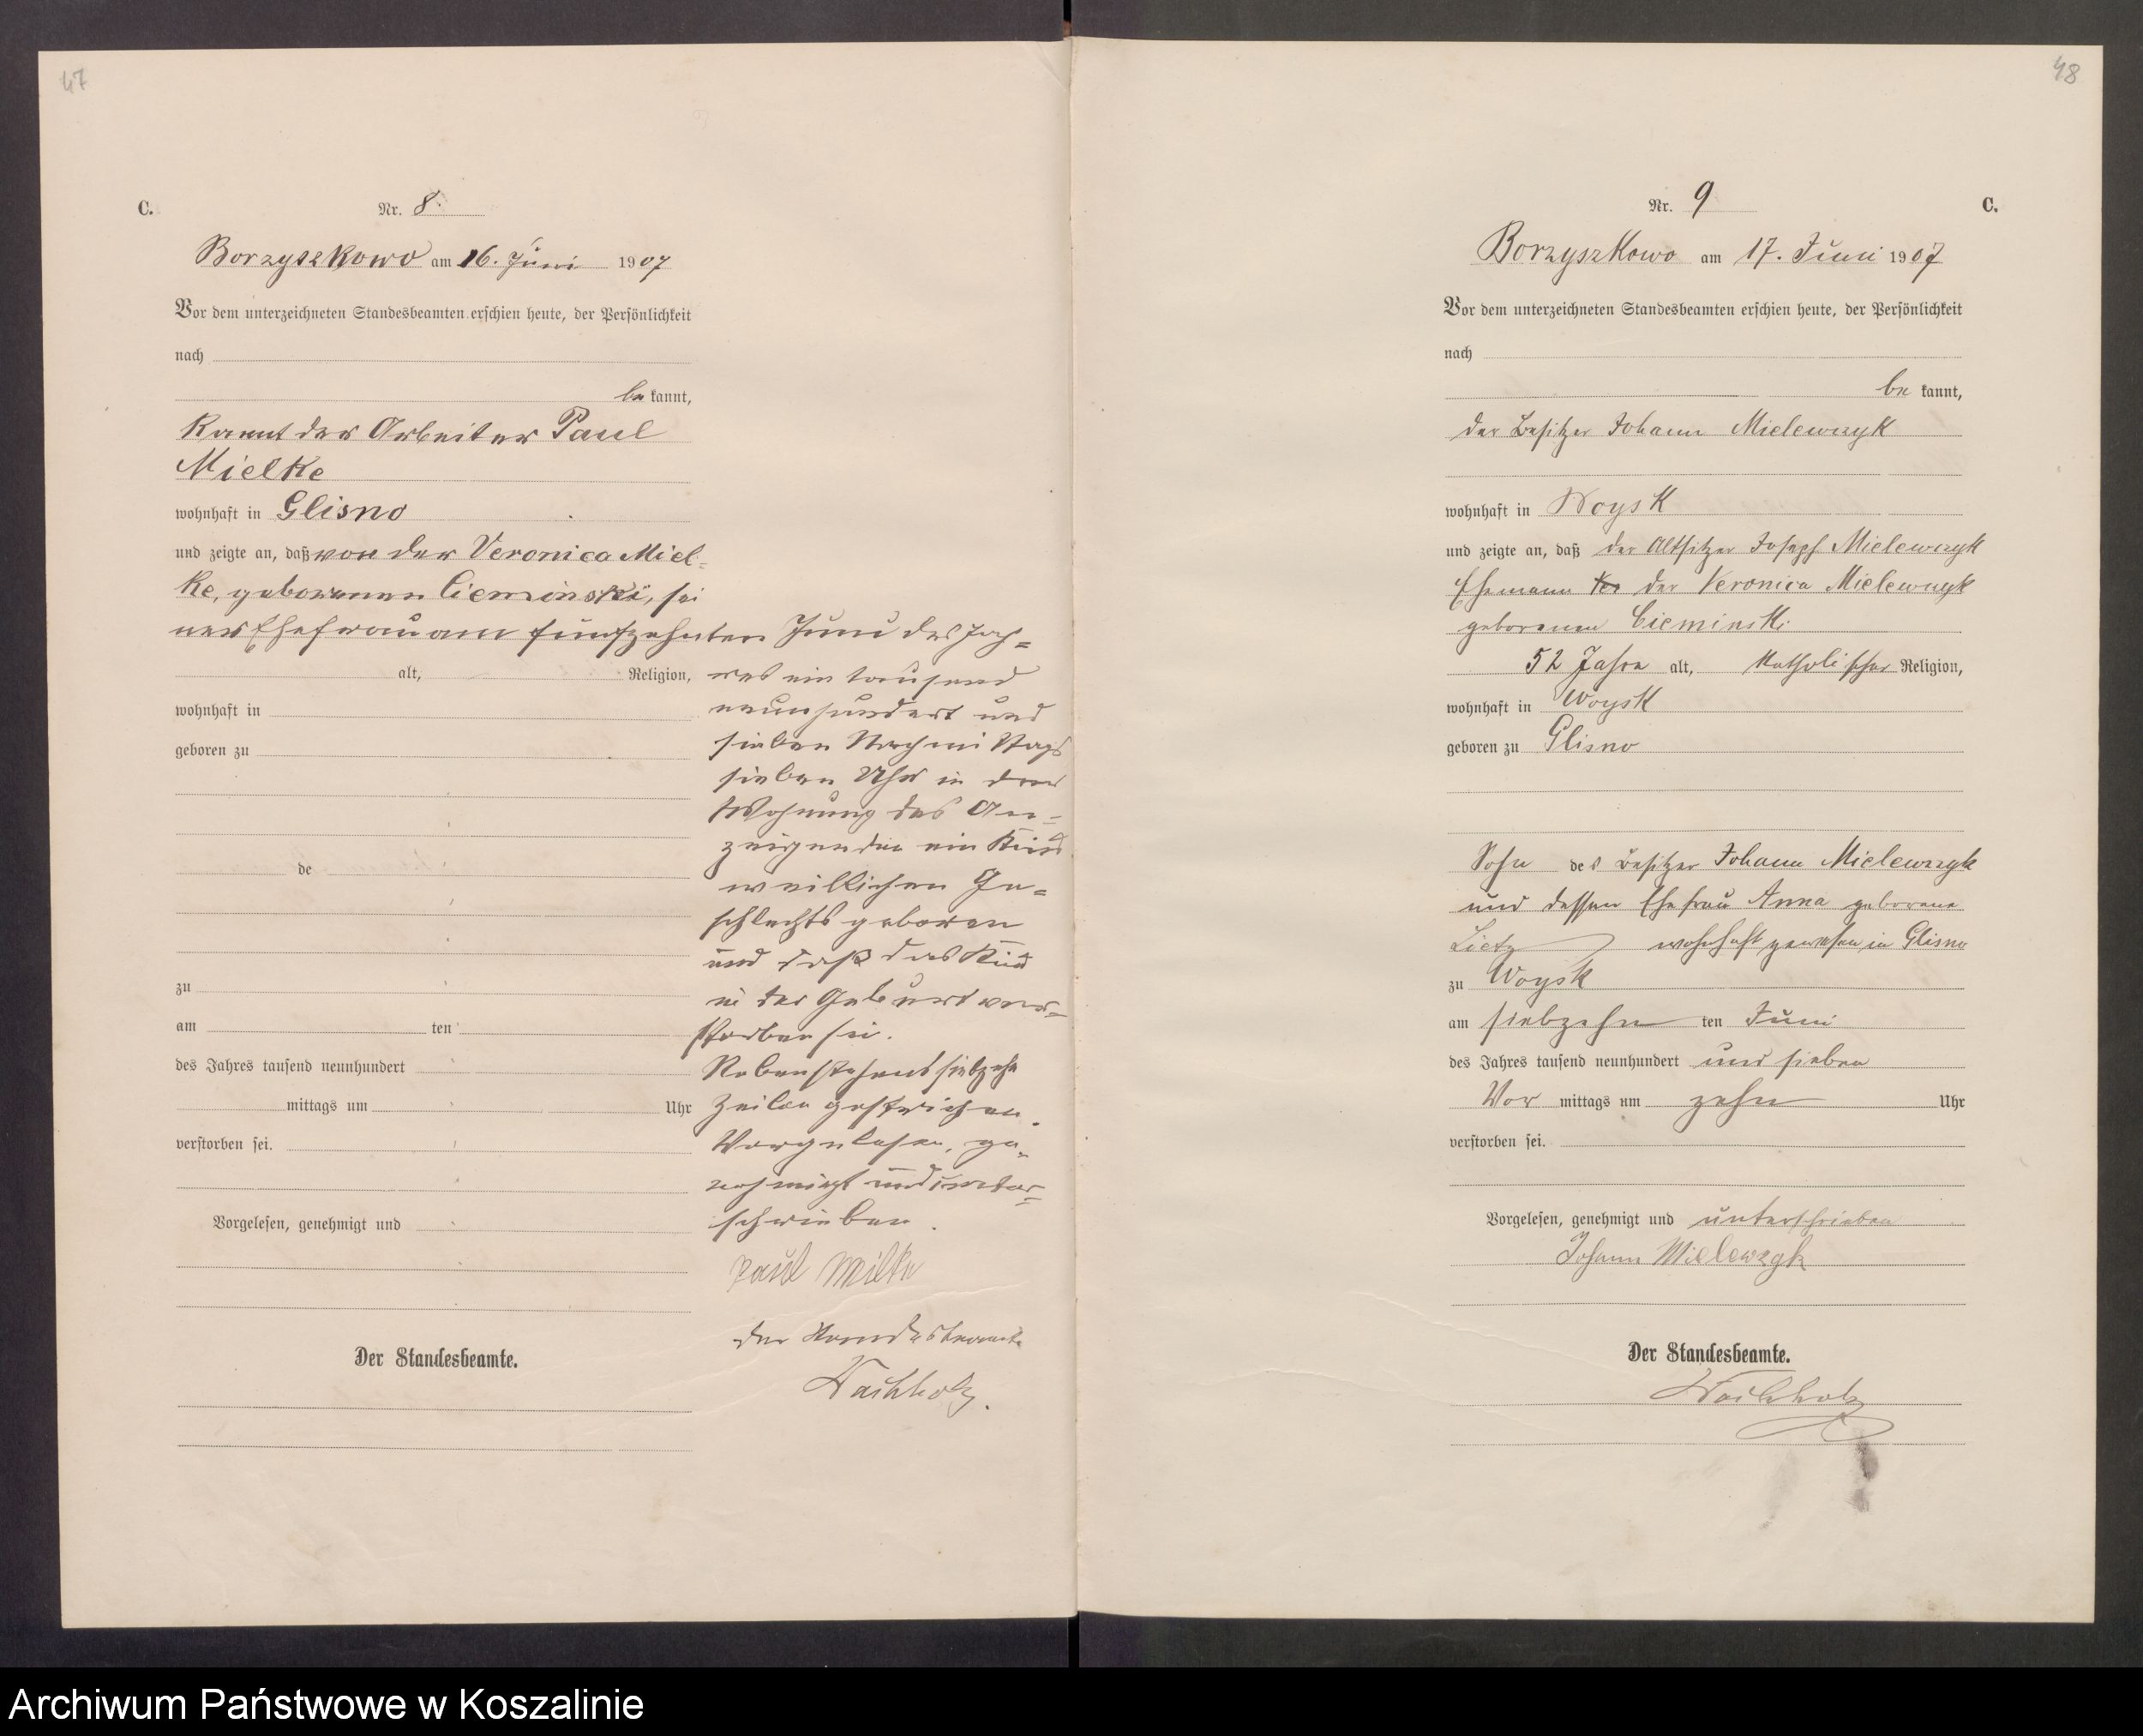 47
C.
Nr. 8.
Borzyszkowo am 16. Juni 1907
Vor dem unterzeichneten Standesbeamten erschien heute, der Persönlichkeit
nach
be kannt,
kannt der Arbeiter Paul
Mielke
wohnhaft in Glisno
und zeigte an, daß von der Veronica Miel-
ke, geborenen Cieminski, sei
ner Ehefrau am fünfzehnten Juni des Jah=
alt, Religion,
wohnhaft in
geboren zu
de
zu
am ten
des Jahres tausend neunhundert
mittags um Uhr
verstorben sei.
Vorgelesen, genehmigt und
Der Standesbeamte.
res ein tausend
neunhundert und
sieben Nachmittags
sieben Uhr in der
Wohnung des An=
zeigenden ein Kind
weiblichen Ge=
schlechts geboren
und daß das Kind
in der Geburt ver=
storben sei.
Nebenstehend siebzehn
Zeilen gestrichen.
Vorgelesen, ge=
nehmigt und unter=
schrieben.
Paul Milke
Der Standesbeamte
Wachholz.
48
Nr. 9
C.
Borzyszkowo am 17. Juni 1907
Vor dem unterzeichneten Standesbeamten erschien heute, der Persönlichkeit
nach
be kannt,
der Besitzer Johann Mielewczyk
wohnhaft in Woysk
und zeigte an, daß der Altsitzer Joseph Mielewczyk
Ehemann der Veronica Mielewczyk
geborenen Cieminski
52 Jahre alt, katholischer Religion,
wohnhaft in Woysk
geboren zu Glisno
Sohn des Besitzer Johann Mielewczyk
und dessen Ehefrau Anna geborene
Lietz wohnhaft gewesen in Glisno
zu Woysk
am siebzehn ten Juni
des Jahres tausend neunhundert und sieben
Vor mittags um zehn Uhr
verstorben sei.
Vorgelesen, genehmigt und unterschrieben
Johann Mielewzyk
Der Standesbeamte.
Wachholz
Archiwum Państwowe w Koszalinie